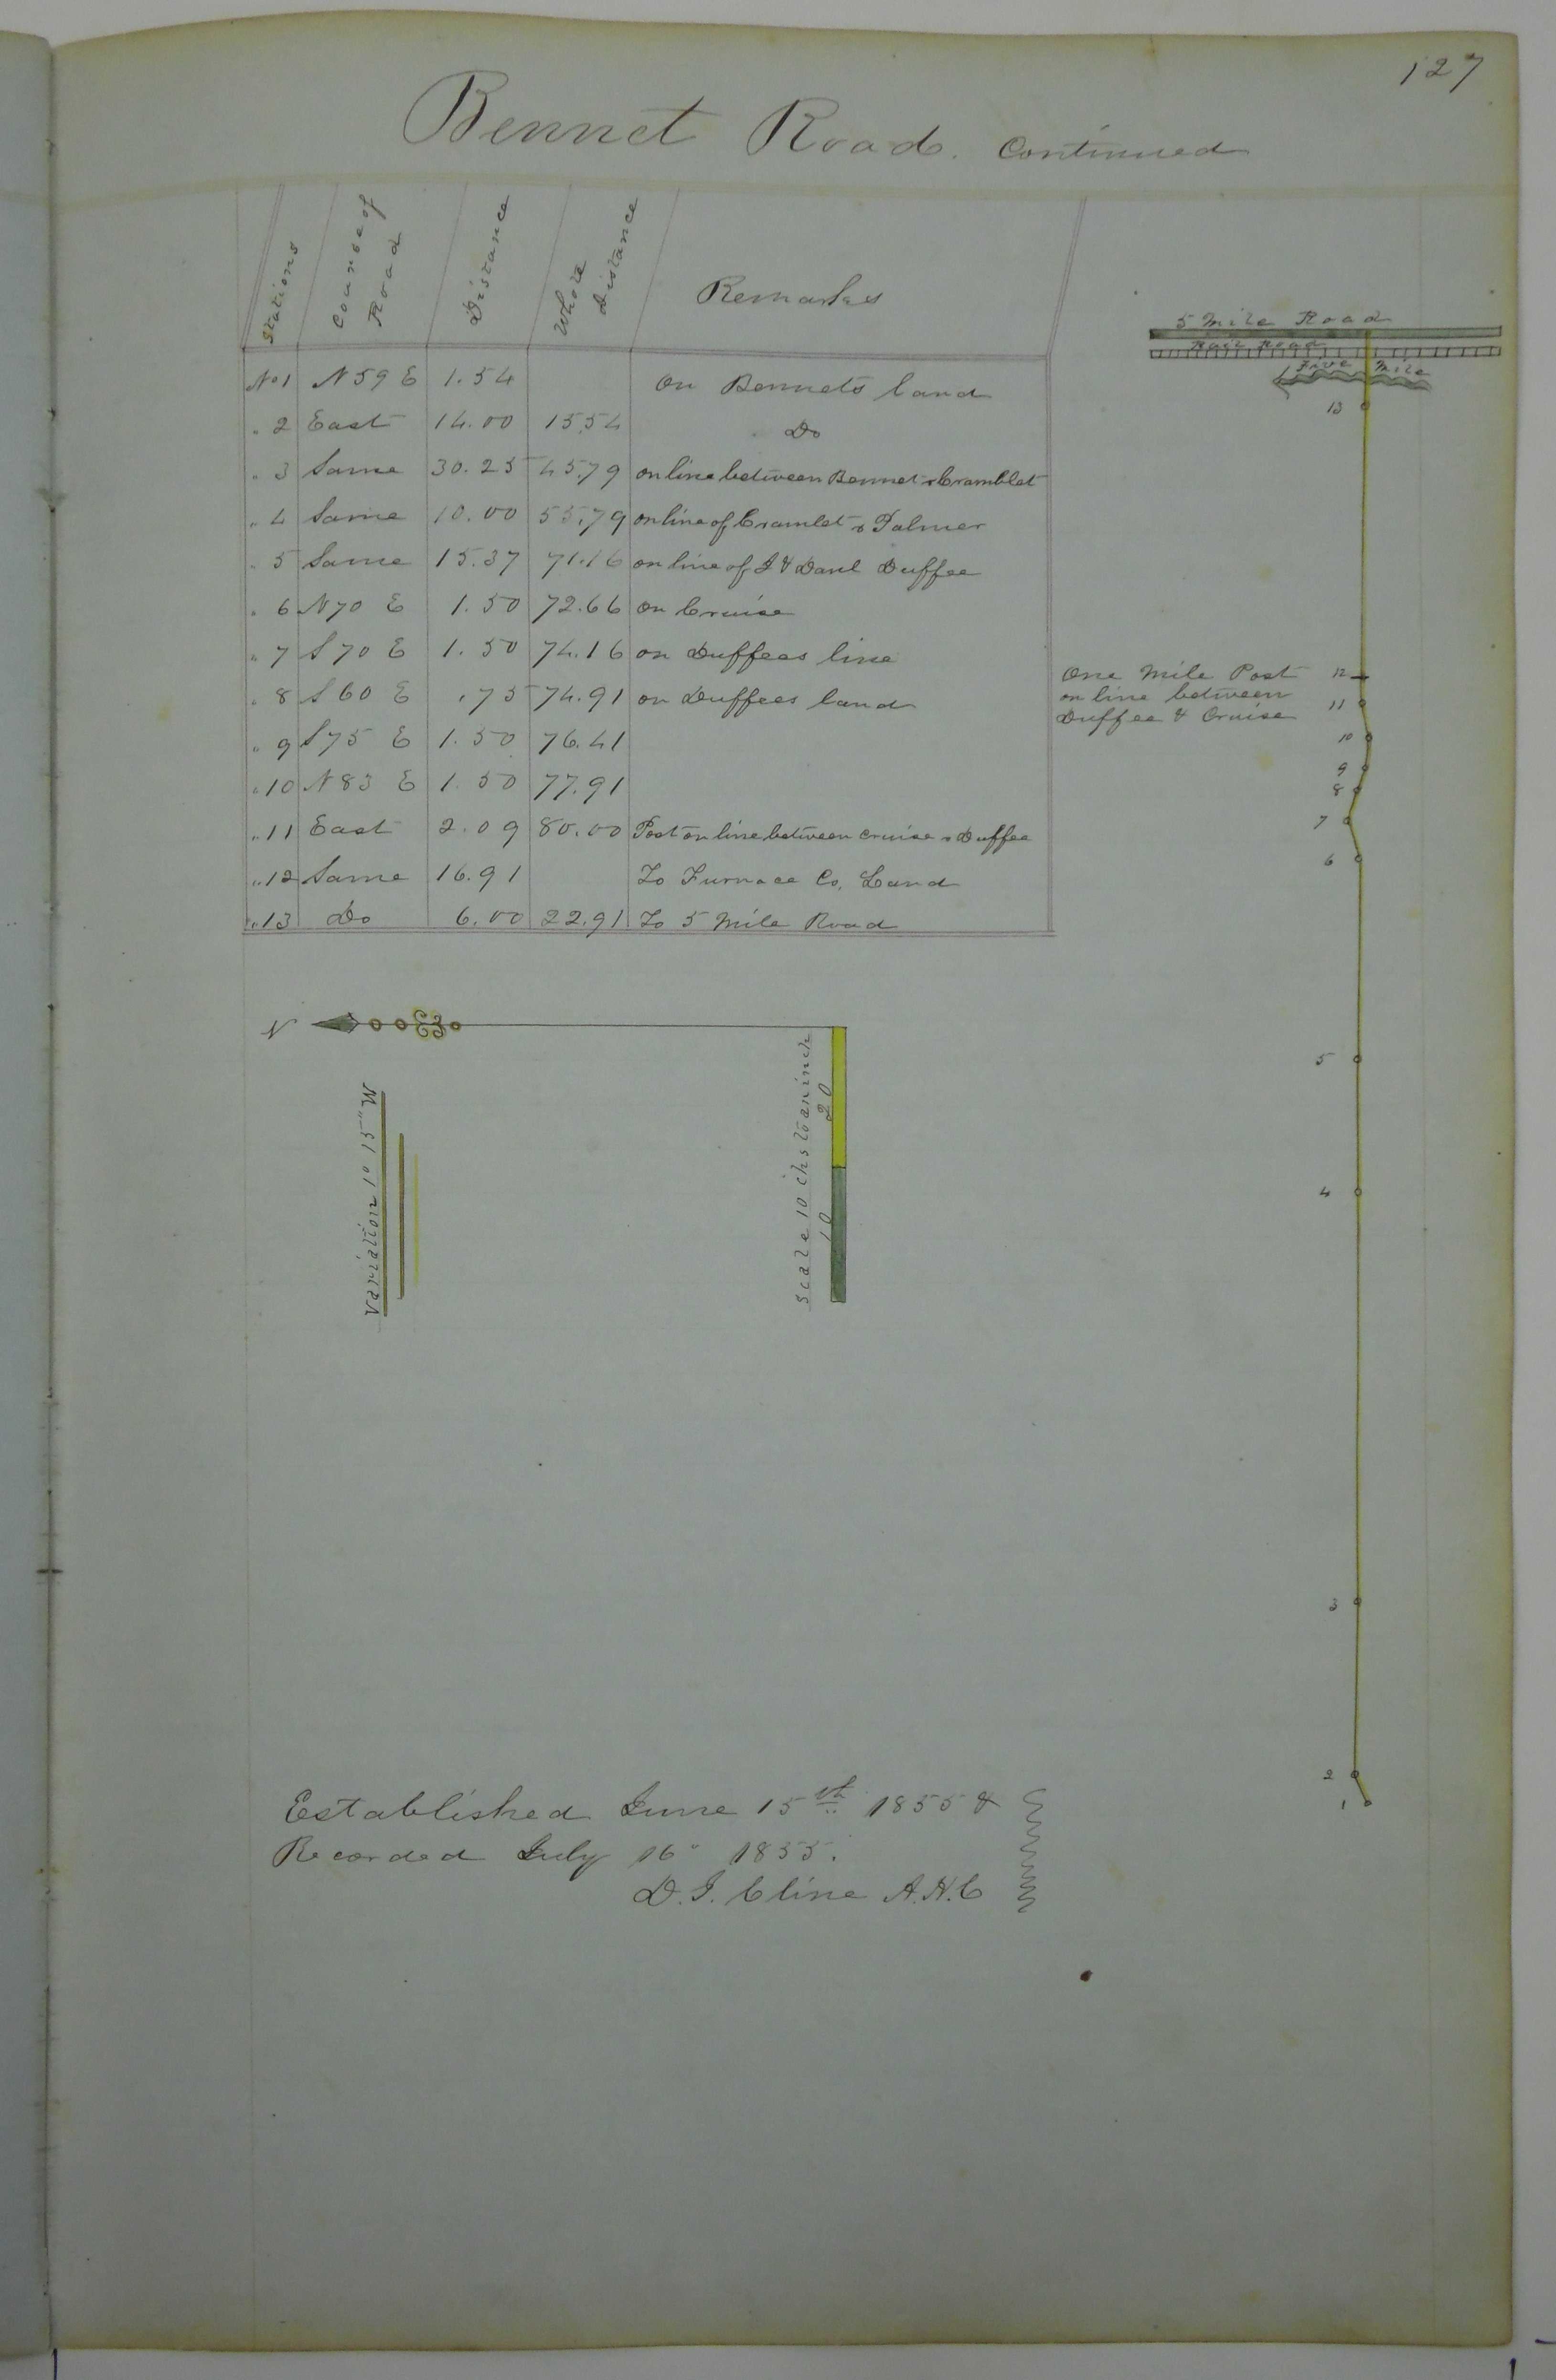 127
Bennet Road. Continued
Stations Course of Road Distance Whole Distance Remarks
No 1 N 59 E 1.54 On Bennets land
" 2 East 14.00 15.54 Do
" 3 Same 30.25 45.79 on line between Bennet & Cramblet
" 4 Same 10.00 55.79 on line of Cramlet & Palmer
" 5 Same 15.37 71.16 on line of J & Danl Duffee
" 6 N 70 E 1.50 72.66 on Cruise
" 7 S 70 E 1.50 74.16 on Duffees line
" 8 S 60 E .75 74.91 on Duffees land
" 9 S 75 E 1.50 76.41
" 10 N 83 E 1.50 77.91
" 11 East 2.09 80.00 Post on line between Cruise & Duffee
" 12 Same 16.91 To Furnace Co, Land
" 13 Do 6.00 22.91 To 5 Mile Road
5 Mile Road
Rail Road
Five Mile
13
One Mile Post 12
on line between
Duffee & Cruise
11
10
9
8
7
6
5
4
3
2
1
N
Variation 1° 15" W
Scale 10 chs to an inch
20
10
Established June 15th 1855 &
Recorded July 16" 1855.
D. J. Cline A.H.C